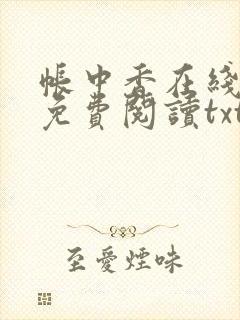 帳中香在綫
免費閱讀txt
至愛煙味